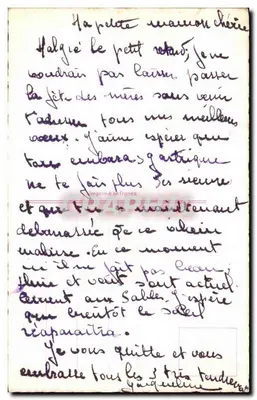 Ma petite maman chérie
Malgré le petit retard, je ne
voudrais pas laisser passer
la fête des mères sans venir
t'adresser tous nos meilleurs
vœux. J'aime espérer que
ton embaras gastrique
ne te fais plus
et que tu maintenant
débarrassée de ce vilain
malaise. En ce moment
il ne fait pas beau,
et vent sont actuel
lement aux Sables. J'espère
que bientôt le soleil
réaparaîtra.
Je vous quitte et vous
embrasse tous les 3 très tendrement
Jacqueline